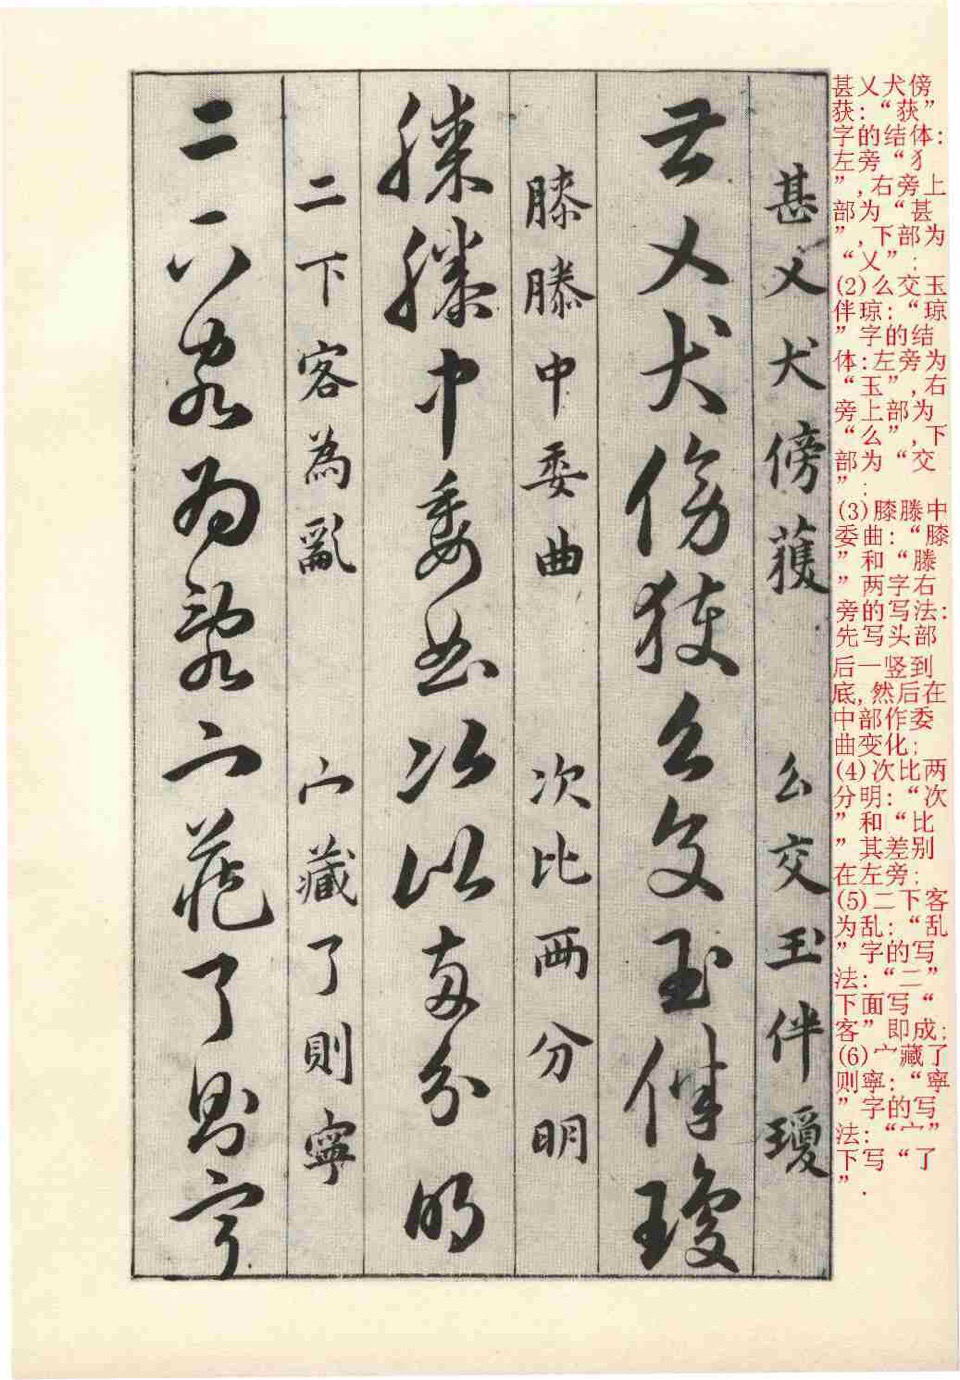 甚乂犬傍
获：“获”
字的结体：
左旁“犭
”，右旁上
部为“甚
”，下部为
“乂”；
(2)么交玉
伴琼：“琼
”字的结
体：左旁为
“玉”，右
旁上部为
“么”，下
部为“交
”；
(3)膝滕中
委曲：“膝
”和“滕
”两字右
旁的写法：
先写头部
后一竖到
底，然后在
中部作委
曲变化；
(4)次比两
分明：“次
”和“比
”其差别
在左旁；
(5)二下客
为乱：“乱
”字的写
法：“二”
下面写“
客”即成；
(6)宀藏了
则寧：“寧
”字的写
法：“宀”
下写“了
”．
甚乂犬傍獲 么交玉伴瓊
甚乂犬傍獲么交玉伴瓊
膝滕中委曲 次比两分明
膝滕中委曲次比两分明
二下客為亂 宀藏了則寧
二下客為亂宀藏了則寧